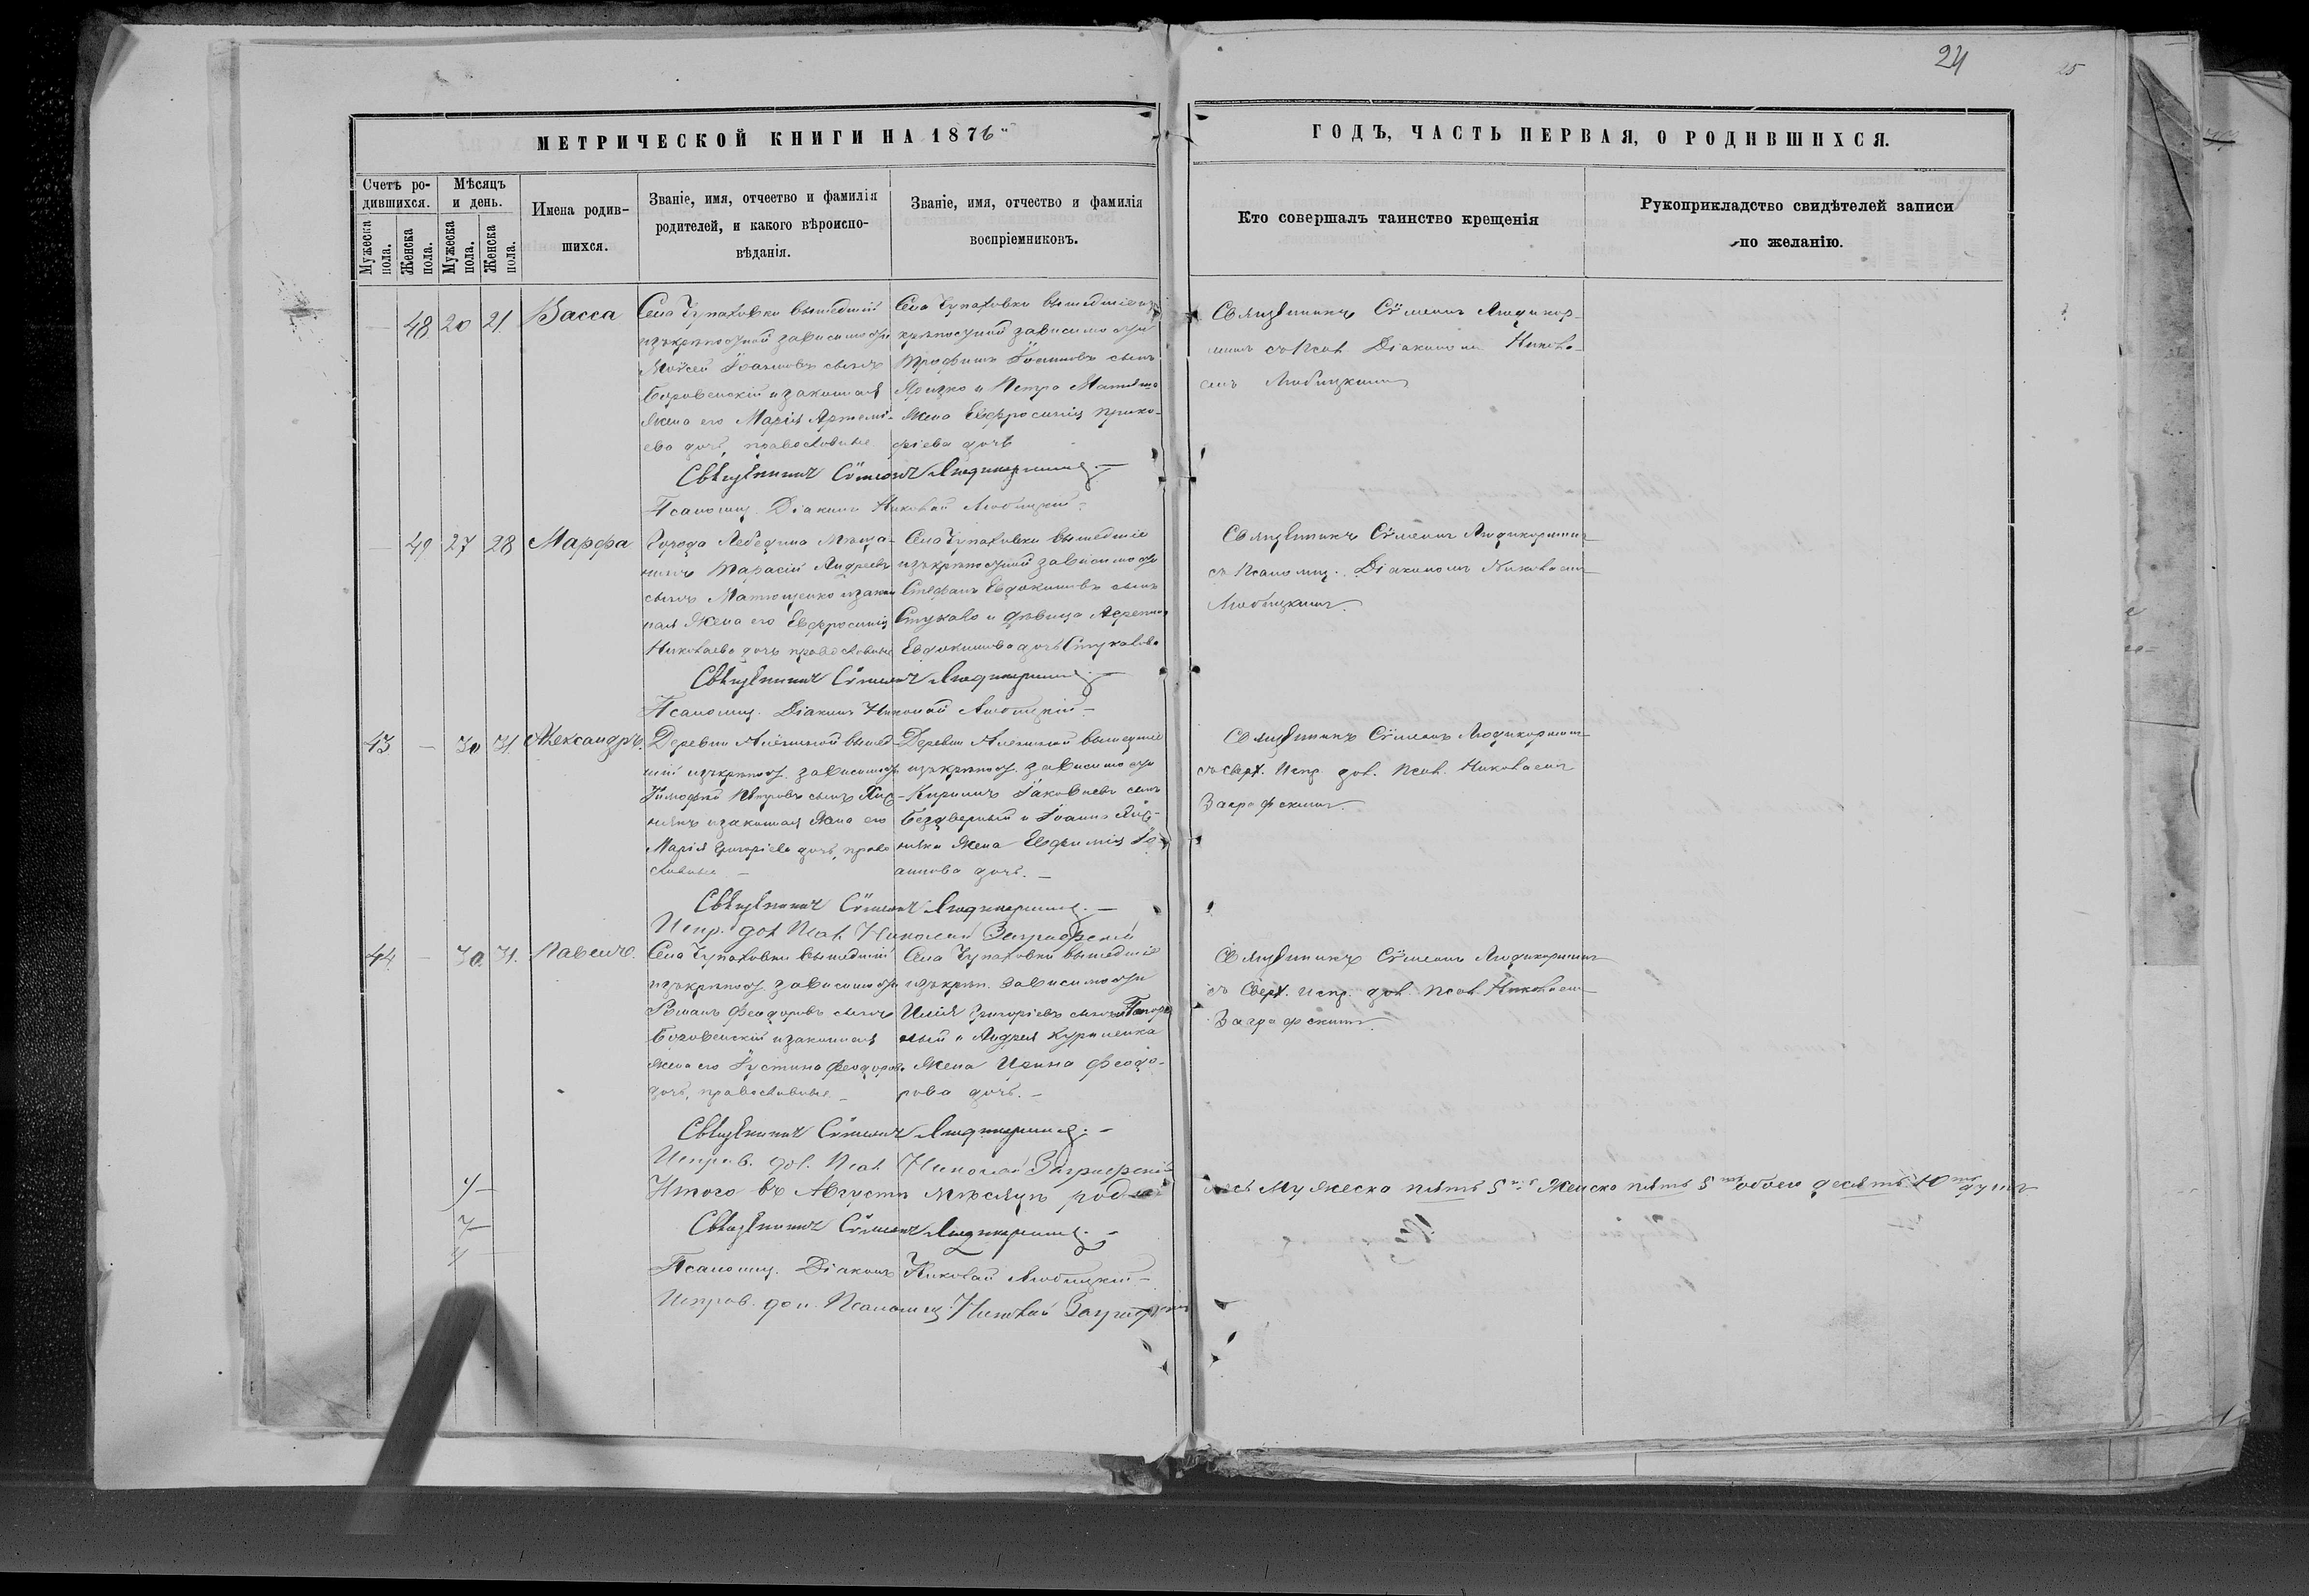 24
25
МЕТРИЧЕСКОЙ КНИГИ НА 1876
ГОДЪ, ЧАСТЬ ПЕРВАЯ, О РОДИВШИХСЯ.
Счетъ ро-
дившихся.
Мужеска пола.
Женска пола.
Мѣсяцъ
и день.
Мужеска пола.
Женска пола.
Имена родив-
шихся.
Званіе, имя, отчество и фамилія
родителей, и какого вѣроиспо-
вѣданія.
Званіе, имя, отчество и фамилія
воспріемниковъ.
Кто совершалъ таинство крещенія
Рукоприкладство свидѣтелей записи
по желанію.
— 48 20 21 Васса
Села Чупаховки вышедшій
изъ крѣпостной зависимости
Мойсей Іоанновъ сынъ
Боровенскій и законная
жена его Марія Артемі-
ева дочь, православные
Села Чупаховки вышедшіе изъ
крѣпостной зависимости
Трофимъ Іоанновъ сынъ
и Петра
жена Евфросинія Проко-
фіева дочь
Священникъ Сѵмеонъ
съ Псал. Діакономъ Никола-
емъ Любицкимъ
Священникъ Сѵмеонъ
Псаломщ. Діаконъ Николай Любицкій
— 49 27 28 Марфа
Города Лебедина Мѣща-
нинъ Тарасій Андреевъ
сынъ Матющенко и закон
ная жена его Евфросинія
Николаева дочь православные
Села Чупаховки вышедшіе
изъ крѣпостной зависимости
Стефанъ Евдокимовъ сынъ
Стукало и дѣвица Агрепина
Евдокимова дочь Стукалова
Священникъ Сѵмеонъ
съ Псаломщ. Діакономъ Николаемъ
Любицкимъ.
Священникъ Сѵмеонъ
Псаломщ. Діаконъ Николай Любицкій
43 — 30 31. Александръ.
Деревни вышед-
шій изъ крѣпост. зависимости
Тимофей Петровъ сынъ
и законная жена его
Марія Григоріева дочь, право
славные —
Деревни вышедшіе
изъ крѣпост. зависимости
Кириллъ Іаковлевъ сынъ
Бездверный и Іоанна
жена Евфимія Іо-
аннова дочь. —
Священникъ Сѵмеонъ
съ сверх. Испр. дол. Псал. Николаемъ
Заграфскимъ.
Священникъ Сѵмеонъ
Испр. дол Псал. Николай Заграфскій
44 — 30. 31. Павелъ.
Села Чупаховки вышедшій
изъ крѣпост. зависимости
Романъ Феодоровъ сынъ
Боровенскій и законная
жена его Іустина Феодорова
дочь, православные —
Села Чупаховки вышедшіе
изъ крѣп. зависимости
Илія Григоріевъ сынъ
и Андрея Куриленка
жена Ирина Феодо-
рова дочь. —
Священникъ Сѵмеонъ
съ Сверх. испр. дол. Псал. Николаем
Заграфскимъ.
Священникъ Сѵмеонъ
Исправ. дол. Псал Николай Заграфскій
Итого въ Августѣ мѣсяцѣ родилось мужеска пять 5 женска пять 5 обоего десять 10 душъ
Священникъ Сѵмеонъ
Псаломщ. Діаконъ Николай Любицкій —
Исправ. дол. Псаломщ. Николай Заграфскій